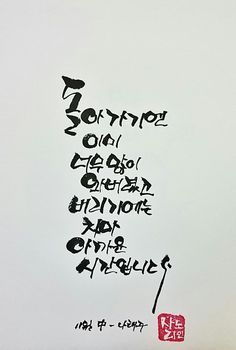 돌아가기엔
이미
너무 많이
와버렸고
버리기에는
차마
아까운
시간입니다